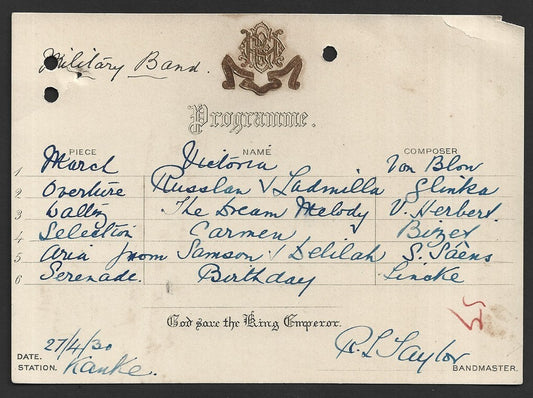 Military Band.
Programme.
PIECE NAME COMPOSER
1 March Victoria Von Blon
2 Overture Russlan & Ludmilla Glinka
3 Waltz The Dream Melody V. Herbert.
4 Selection Carmen Bizet
5 Aria from Samson & Delilah S. Säens
6 Serenade. Birthday Lincke
God save the King Emperor.
DATE. 27/4/30
STATION. Kanke.
R. L Taylor
BANDMASTER.